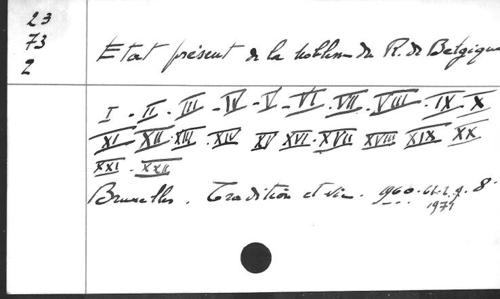 23
73
2
Etat présent de la noblesse du R. de Belgique
I - II - III - IV - V - VI - VII - VIII - IX - X
XI - XII - XIII - XIV XV XVI - XVII XVIII XIX XX
XXI - XXII
Bruxelles. Tradition et vie. 1960. 8°
1974